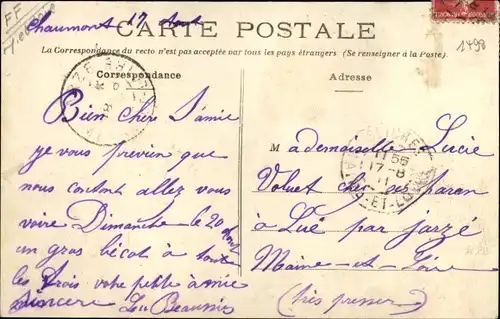 Chaumont 17 Aout
CARTE POSTALE
La Correspondance du recto n'est pas acceptée par tous les pays étrangers (Se renseigner à la Poste).
1498
Correspondance
Adresse
Bien chère Lamie
Mademoiselle Lucie
je vous previen que
Voluet chez ses paran
nous contont allez vous
à Lué par jarzé
voire Dimanche le 20 aout
Maine-et-Loire
un gros bécot à toute
les trois votre petite amie
(très presser)
sincere
11 55
17-8
ET-LOIRE
FF